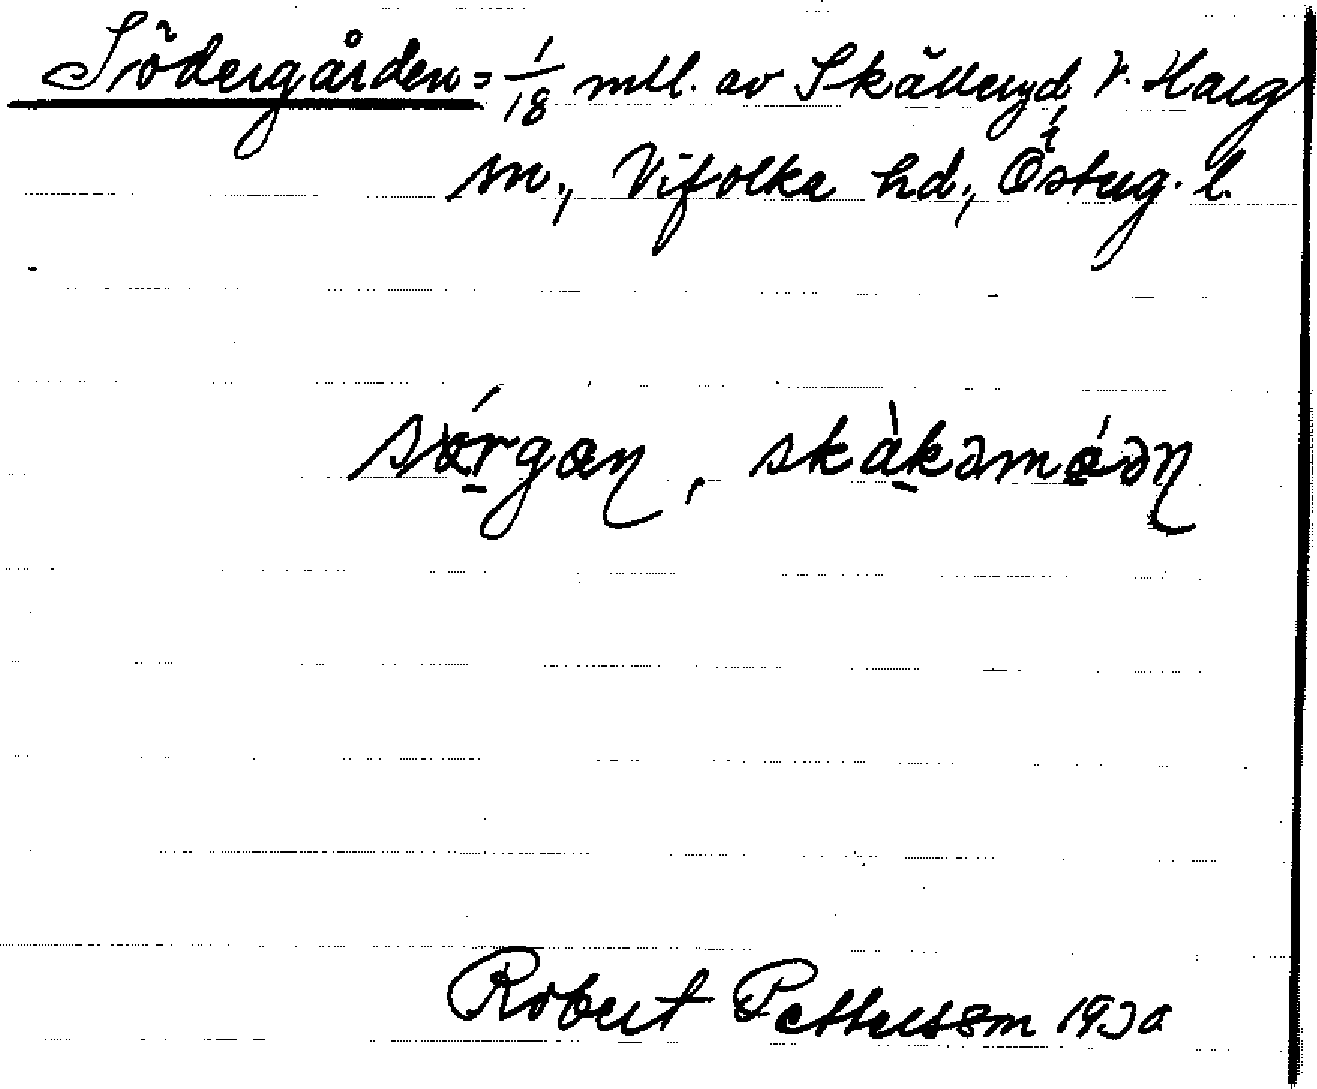 Södergården = 1/18 mtl. av Skälleryd, V. Harg
sn., Vifolka hd., Österg. l.
sǿrgaɳ, skàkəmóəɳ
Robert Pettersson 1930